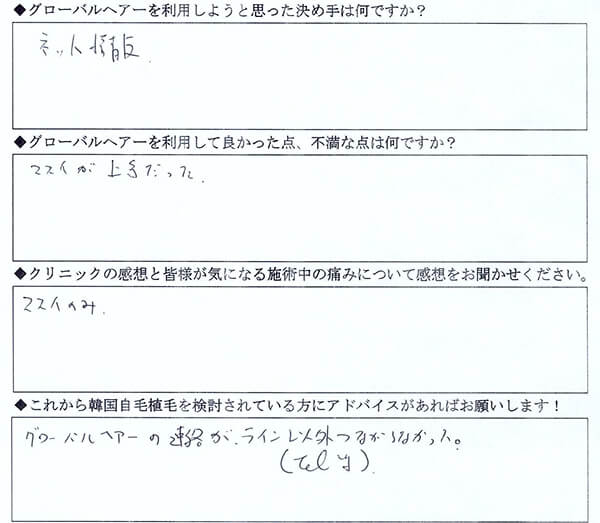 ◆グローバルヘアーを利用しようと思った決め手は何ですか？
ネット情報.
◆グローバルヘアーを利用して良かった点、不満な点は何ですか？
マスイが上手だった.
◆クリニックの感想と皆様が気になる施術中の痛みについて感想をお聞かせください。
マスイのみ.
◆これから韓国自毛植毛を検討されている方にアドバイスがあればお願いします！
グローバルヘアーの連絡が、ライン以外つながらなかった。
(tel